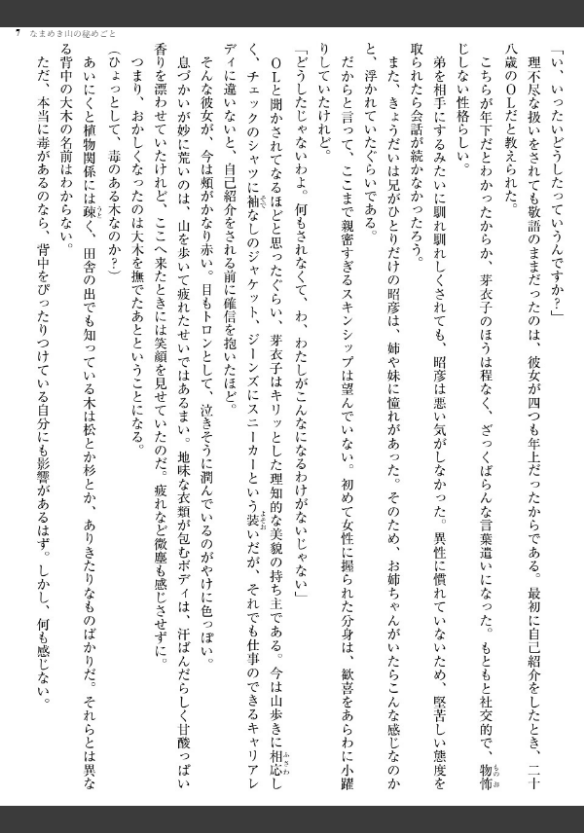 7 なまめき山の秘めごと
「い、いったいどうしたっていうんですか？」
　理不尽な扱いをされても敬語のままだったのは、彼女が四つも年上だったからである。最初に自己紹介をしたとき、二十
八歳のＯＬだと教えられた。
　こちらが年下だとわかったからか、芽衣子のほうは程なく、ざっくばらんな言葉遣いになった。もともと社交的で、物怖
じしない性格らしい。
　弟を相手にするみたいに馴れ馴れしくされても、昭彦は悪い気がしなかった。異性に慣れていないため、堅苦しい態度を
取られたら会話が続かなかったろう。
　また、きょうだいは兄がひとりだけの昭彦は、姉や妹に憧れがあった。そのため、お姉ちゃんがいたらこんな感じなのか
と、浮かれていたぐらいである。
　だからと言って、ここまで親密すぎるスキンシップは望んでいない。初めて女性に握られた分身は、歓喜をあらわに小躍
りしていたけれど。
「どうしたじゃないわよ。何もされなくて、わ、わたしがこんなになるわけがないじゃない」
　ＯＬと聞かされてなるほどと思ったぐらい、芽衣子はキリッとした理知的な美貌の持ち主である。今は山歩きに相応し
く、チェックのシャツに袖なしのジャケット、ジーンズにスニーカーという装いだが、それでも仕事のできるキャリアレ
ディに違いないと、自己紹介をされる前に確信を抱いたほど。
　そんな彼女が、今は頬がかなり赤い。目もトロンとして、泣きそうに潤んでいるのがやけに色っぽい。
　息づかいが妙に荒いのは、山を歩いて疲れたせいではあるまい。地味な衣類が包むボディは、汗ばんだらしく甘酸っぱい
香りを漂わせていたけれど、ここへ来たときには笑顔を見せていたのだ。疲れなど微塵も感じさせずに。
　つまり、おかしくなったのは大木を撫でたあとということになる。
（ひょっとして、毒のある木なのか？）
　あいにくと植物関係には疎く、田舎の出でも知っている木は松とか杉とか、ありきたりなものばかりだ。それらとは異な
る背中の大木の名前はわからない。
　ただ、本当に毒があるのなら、背中をぴったりつけている自分にも影響があるはず。しかし、何も感じない。